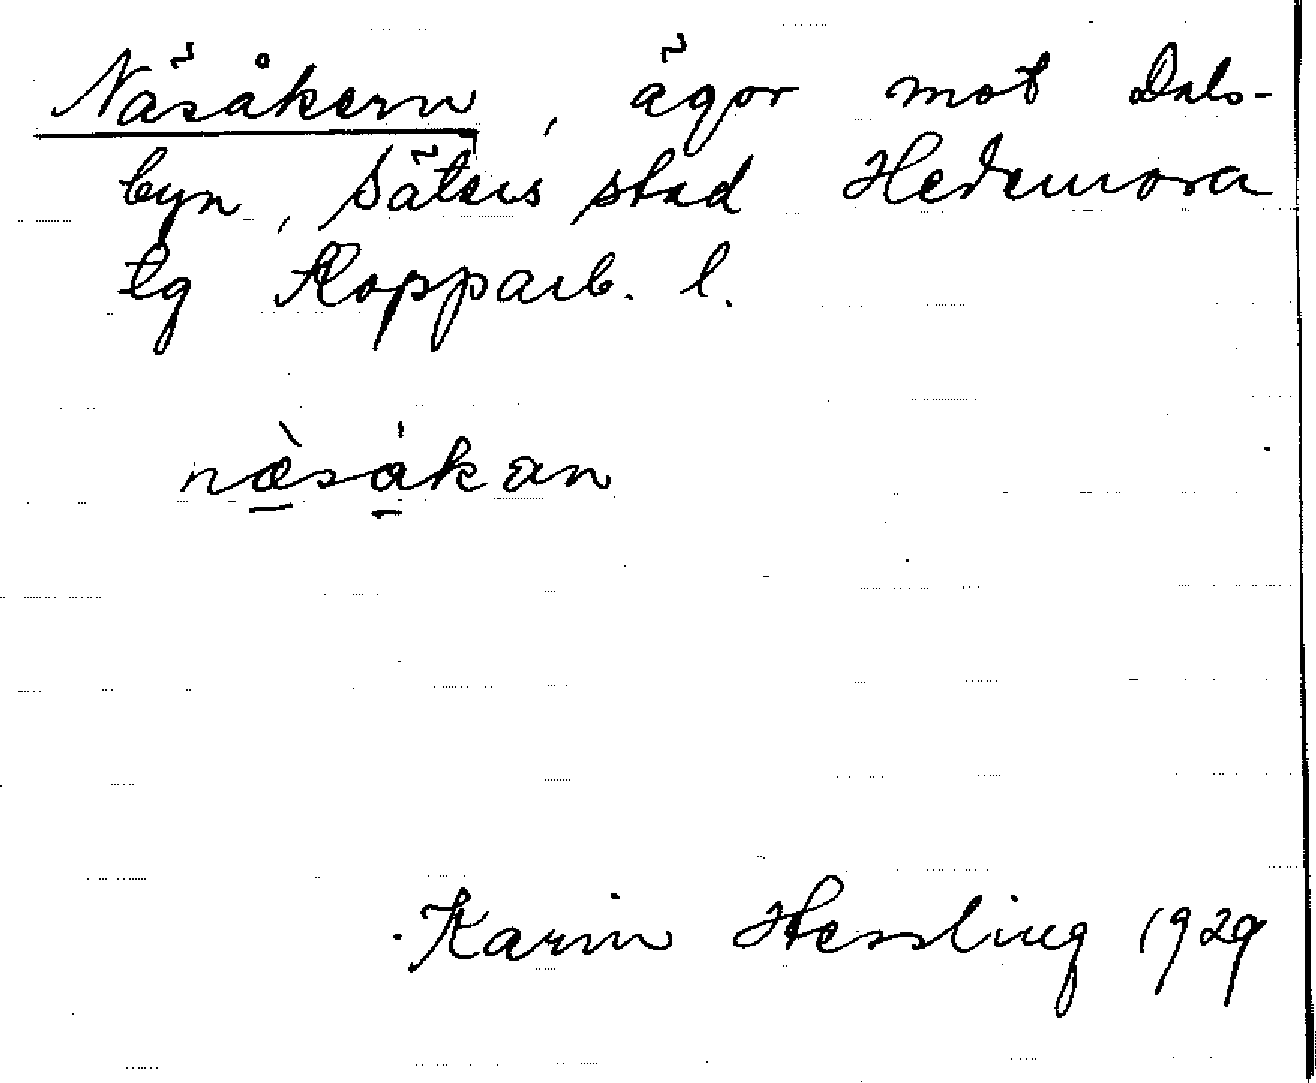 Näsåkern, ägor mot Dals-
byn, Säters stad Hedemora
tg Kopparb. l.
næ̀såkan
Karin Hessling 1929